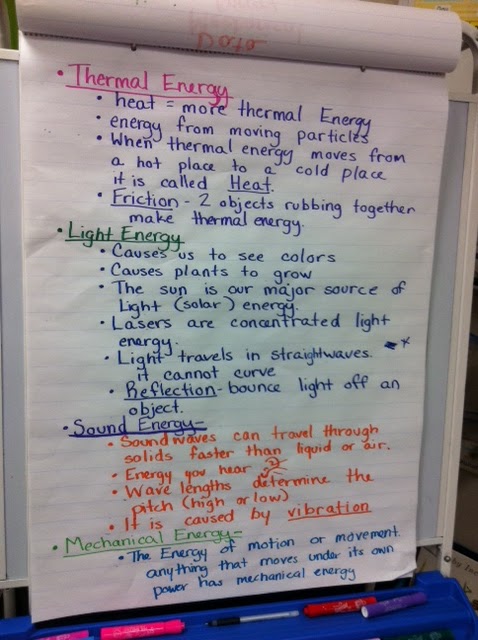 Data
• Thermal Energy
• heat = more thermal Energy
• energy from moving particles
• When thermal energy moves from
a hot place to a cold place
it is called Heat.
• Friction - 2 objects rubbing together
make thermal energy.
• Light Energy
• Causes us to see colors
• Causes plants to grow
• The sun is our major source of
Light (solar) energy.
• Lasers are concentrated light
energy.
• Light travels in straightwaves.
it cannot curve
• Reflection - bounce light off an
object.
• Sound Energy-
• Soundwaves can travel through
solids faster than liquid or air.
• Energy you hear
• Wave lengths determine the
pitch (high or low)
• It is caused by vibration
• Mechanical Energy-
• The Energy of motion or movement.
anything that moves under its own
power has mechanical energy